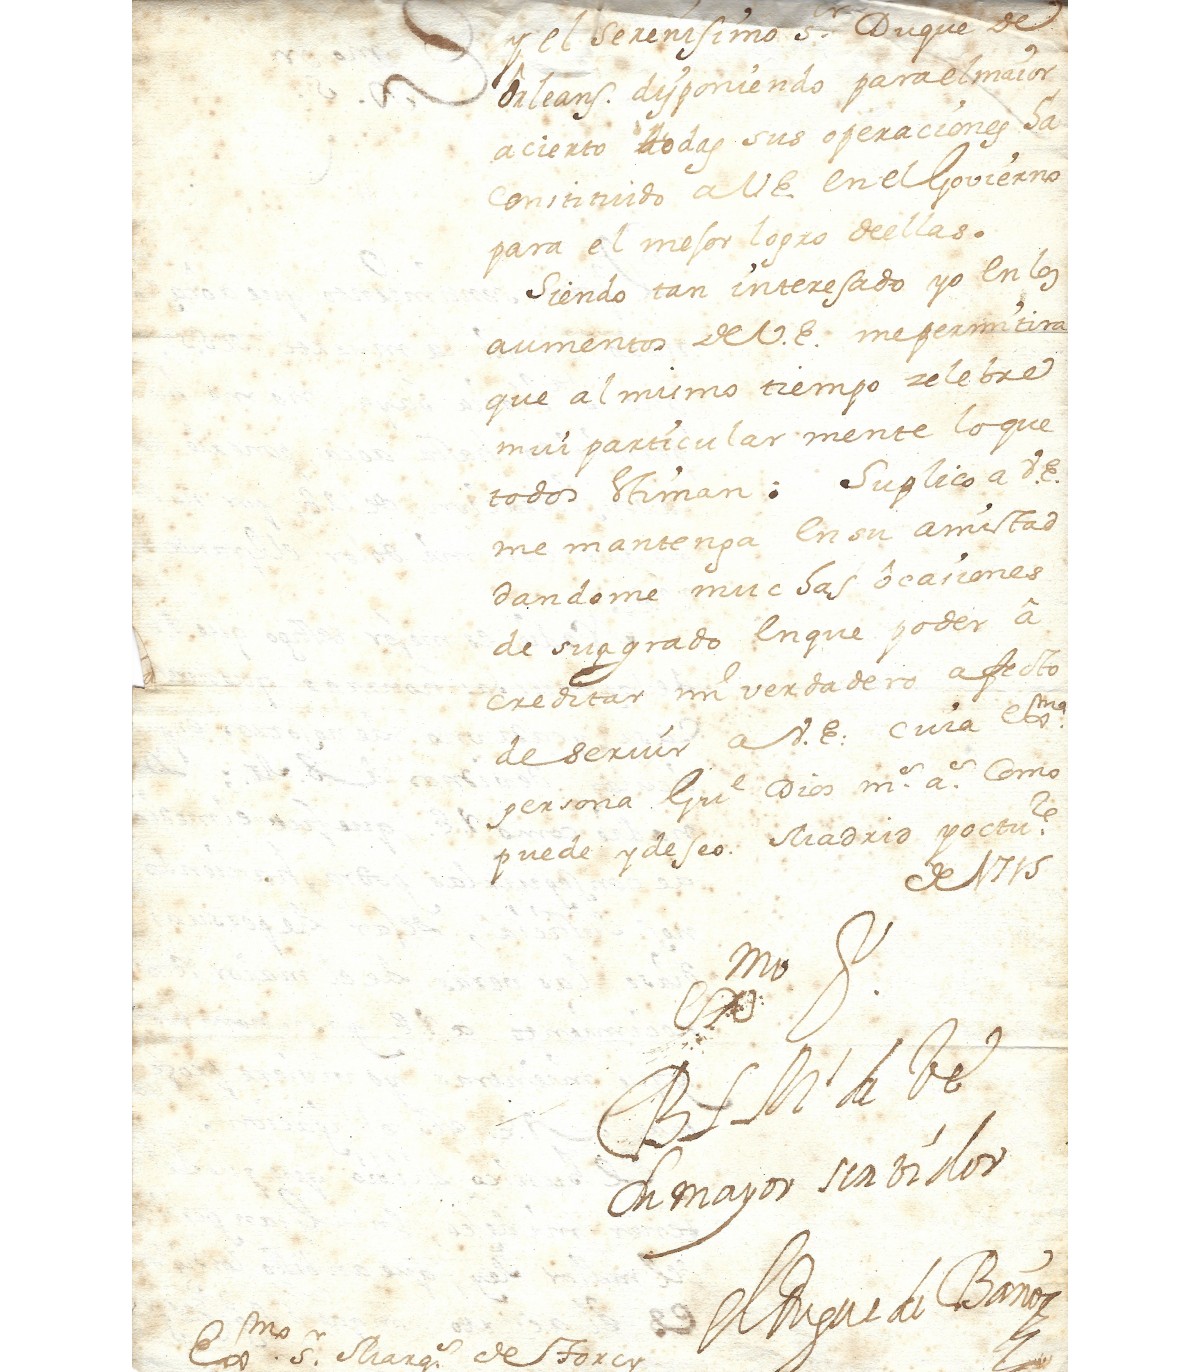 y el Serenisimo Sr. Duque de
Orleans. disponiendo para el maior
acierto todas sus operaciones ha
Constituido a V.E. en el Govierno
para el mejor logro de ellas.
Siendo tan interesado yo en los
aumentos de V.E. me permitira
que al mismo tiempo zelebre
mui particular mente lo que
todos estiman; Suplico a V.E.
me mantenga en su amistad
dandome muchas ôcasiones
de su agrado en que poder â
creditar mi verdadero afecto
de servir a V.E. cuia Exma.
persona Gue Dios ms. as. Como
puede y deseo. Madrid y octure.
de 1715
Exmo. Sr.
BLM de VE
Su mayor servidor
el Duque de Baños
Exmo. Sr. Marqs. de Torcy